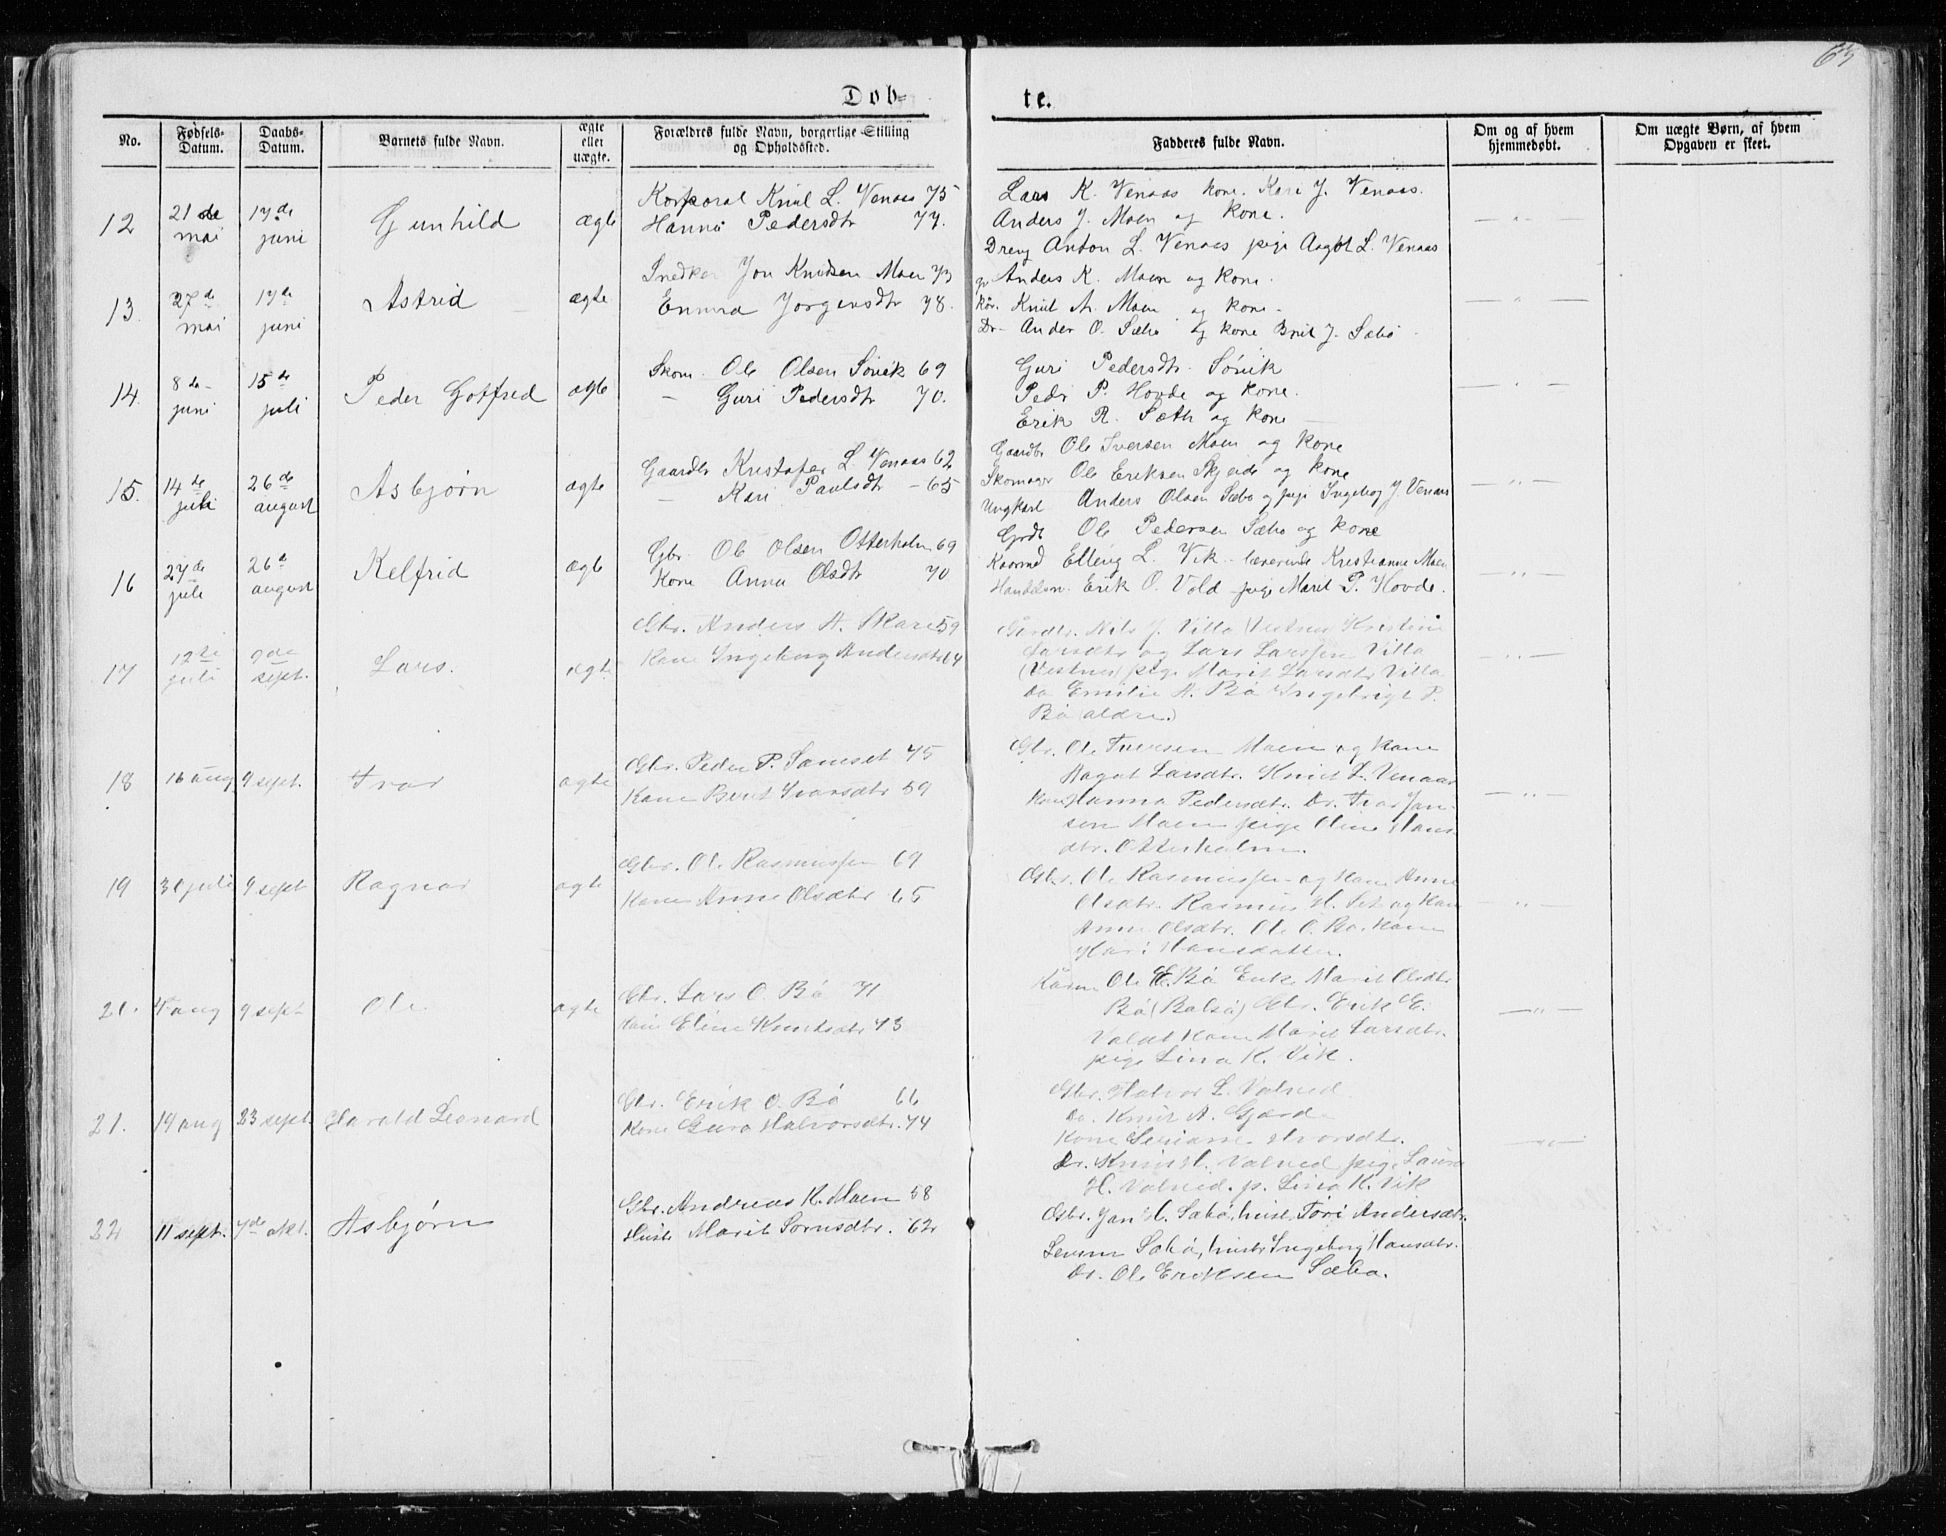 63
Døb=
te.
No.
Fødsels-
Datum.
Daabs-
Datum.
Barnets fulde Navn.
ægte
eller
uægte.
Forældres fulde Navn, borgerlige Stilling
og Opholdssted.
Fadderes fulde Navn.
Om og af hvem
hjemmedøbt.
Om uægte Børn, af hvem
Opgaven er skeet.
12
21 de
mai
17 de
juni
Gunhild
ægte
Korporal Knut L. Venaas 75
Hanna Pedersdtr 77.
Lars K. Venaas kone. Kari J. Venaas.
Anders J. Moen og kone.
Dreng Anton L. Venaas pige Aagot L. Venaas
— " —
13.
27 de
mai
17 de
juni
Astrid
ægte
Snedker Jon Knudsen Moen 73
Emma Jorgensdtr 78.
Anders K. Moen og kone.
Knut A. Moen og kone.
Dr. Ander O. Sæbø og kone Brit J. Sæbø
— " —
14.
8 de
juni
15 de
juli
Peder Gotfred
ægte
Skom. Ole Olsen Sövik 69
— Guri Pedersdtr 70.
Guri Pedersdtr. Sövik
Peder P. Hovde og kone.
Erik R. Sæth og kone
— " —
15.
14 de
juli
26 de
august
Asbjørn
ægte
Gaardbr Kristofer L. Venaas 62
— Kari Paulsdtr — 65
Gaardbr Ole Iversen Moen og kone
Skomager Ole Eriksen Skjeide og kone
Ungkarl Anders Olsen Sæbø og pige Ingebog J. Venaas
Grdb Ole Pedersen Sæbø og kone
— " —
16
27 de
juli
26 d
august
Kelfrid
ægte
Gbr. Ole Olsen Otterholm 69
Kone Anna Olsdtr 70
Kaarmd Elling L. Vik lærerinde Kristianne Moen
Handelsm. Erik O. Vold pige Marit P. Hovde.
— " —
17
12 te
juli
9 de
sept.
Lars.
ægte
Gbr. Anders A. Skare 59
Kone Ingeborg Andersdtr 64
Gardbr. Nils J. Villa (Vestnes) Kristine
Larsdtr og Lars Larssen Villa
(Vestnes) pige Marit Larsdtr Villa
do Emilie A. Bö Ingebrigt P.
Bö (aldre.)
— " —
18
16 aug
9 sept.
Ivar
ægte
Gbr. Peder P. Samset 75
Kone Berit Ivarsdtr 59
Gbr. Ole Iversen Moen og kone
Aagot Larsdtr. Knut L. Venaas
kone Hanna Pedersdtr. Dr. Ivar Jon-
sen Moen pige Oline Hans-
dtr. Otterholm.
— " —
19
30 juli
9 sept
Ragnar
ægte
Gbr. Ole Rasmussen 69
Kone Anne Olsdtr 65
Gbr. Ole Rasmussen og kone Anne
Olsdtr. Rasmus H. Set og kone
Anne Olsdtr. Ole O. Bö. kone
Mari Hansdatter.
— " —
21.
aug
9 sept
Ole
ægte
Gbr. Lars O. Bö 71
Kone Eline Knutsdtr 73
Kårm Ole E. Bö Enke Marit Olsdtr
Bö (Bolsö) Gbr. Erik E.
Voldt kone Marit Larsdtr.
pige Lina K. Vik.
— " —
21.
14 aug
23 sept.
Harald Leonard
Gbr. Erik O. Bö 66
Kone Guro Halvorsdtr. 74
Gbr. Halvor L. Valved
do. Knut A. Gjærde
Kone
Dr. Knut H. Valved pige Laura
H. Valved. p. Lina K. Vik
— " —
22
11 sept.
7 de okt.
Asbjørn
Gbr. Andreas K. Moen 58
Hustr Marit Sörensdtr. 62
Gbr. Jon H. Sæbö, hust. Töri Andersdtr.
Sæbö, hustr Ingeborg Hansdtr.
Dr. Ole Eriksen Sæbø.